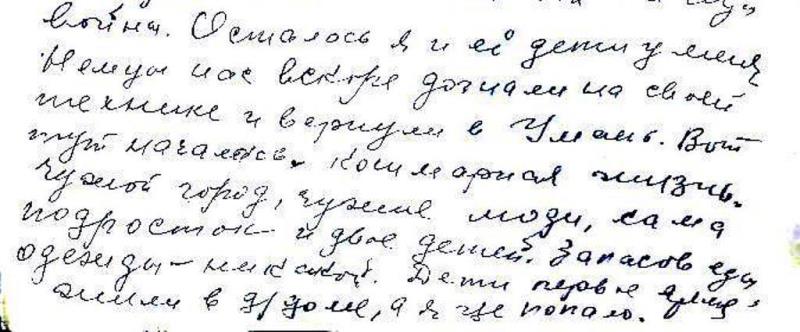 война. Осталось я и её дети у меня
Немцы нас вскоре догнали на своей
технике и вернули в Умань. Вот
тут началась. кошмарная жизнь.
чужой город, чужие люди, сама
подросток и двое детей. Запасов еды,
одежды – никакой. Дети первое время
жили в д/доме, а я где попало.